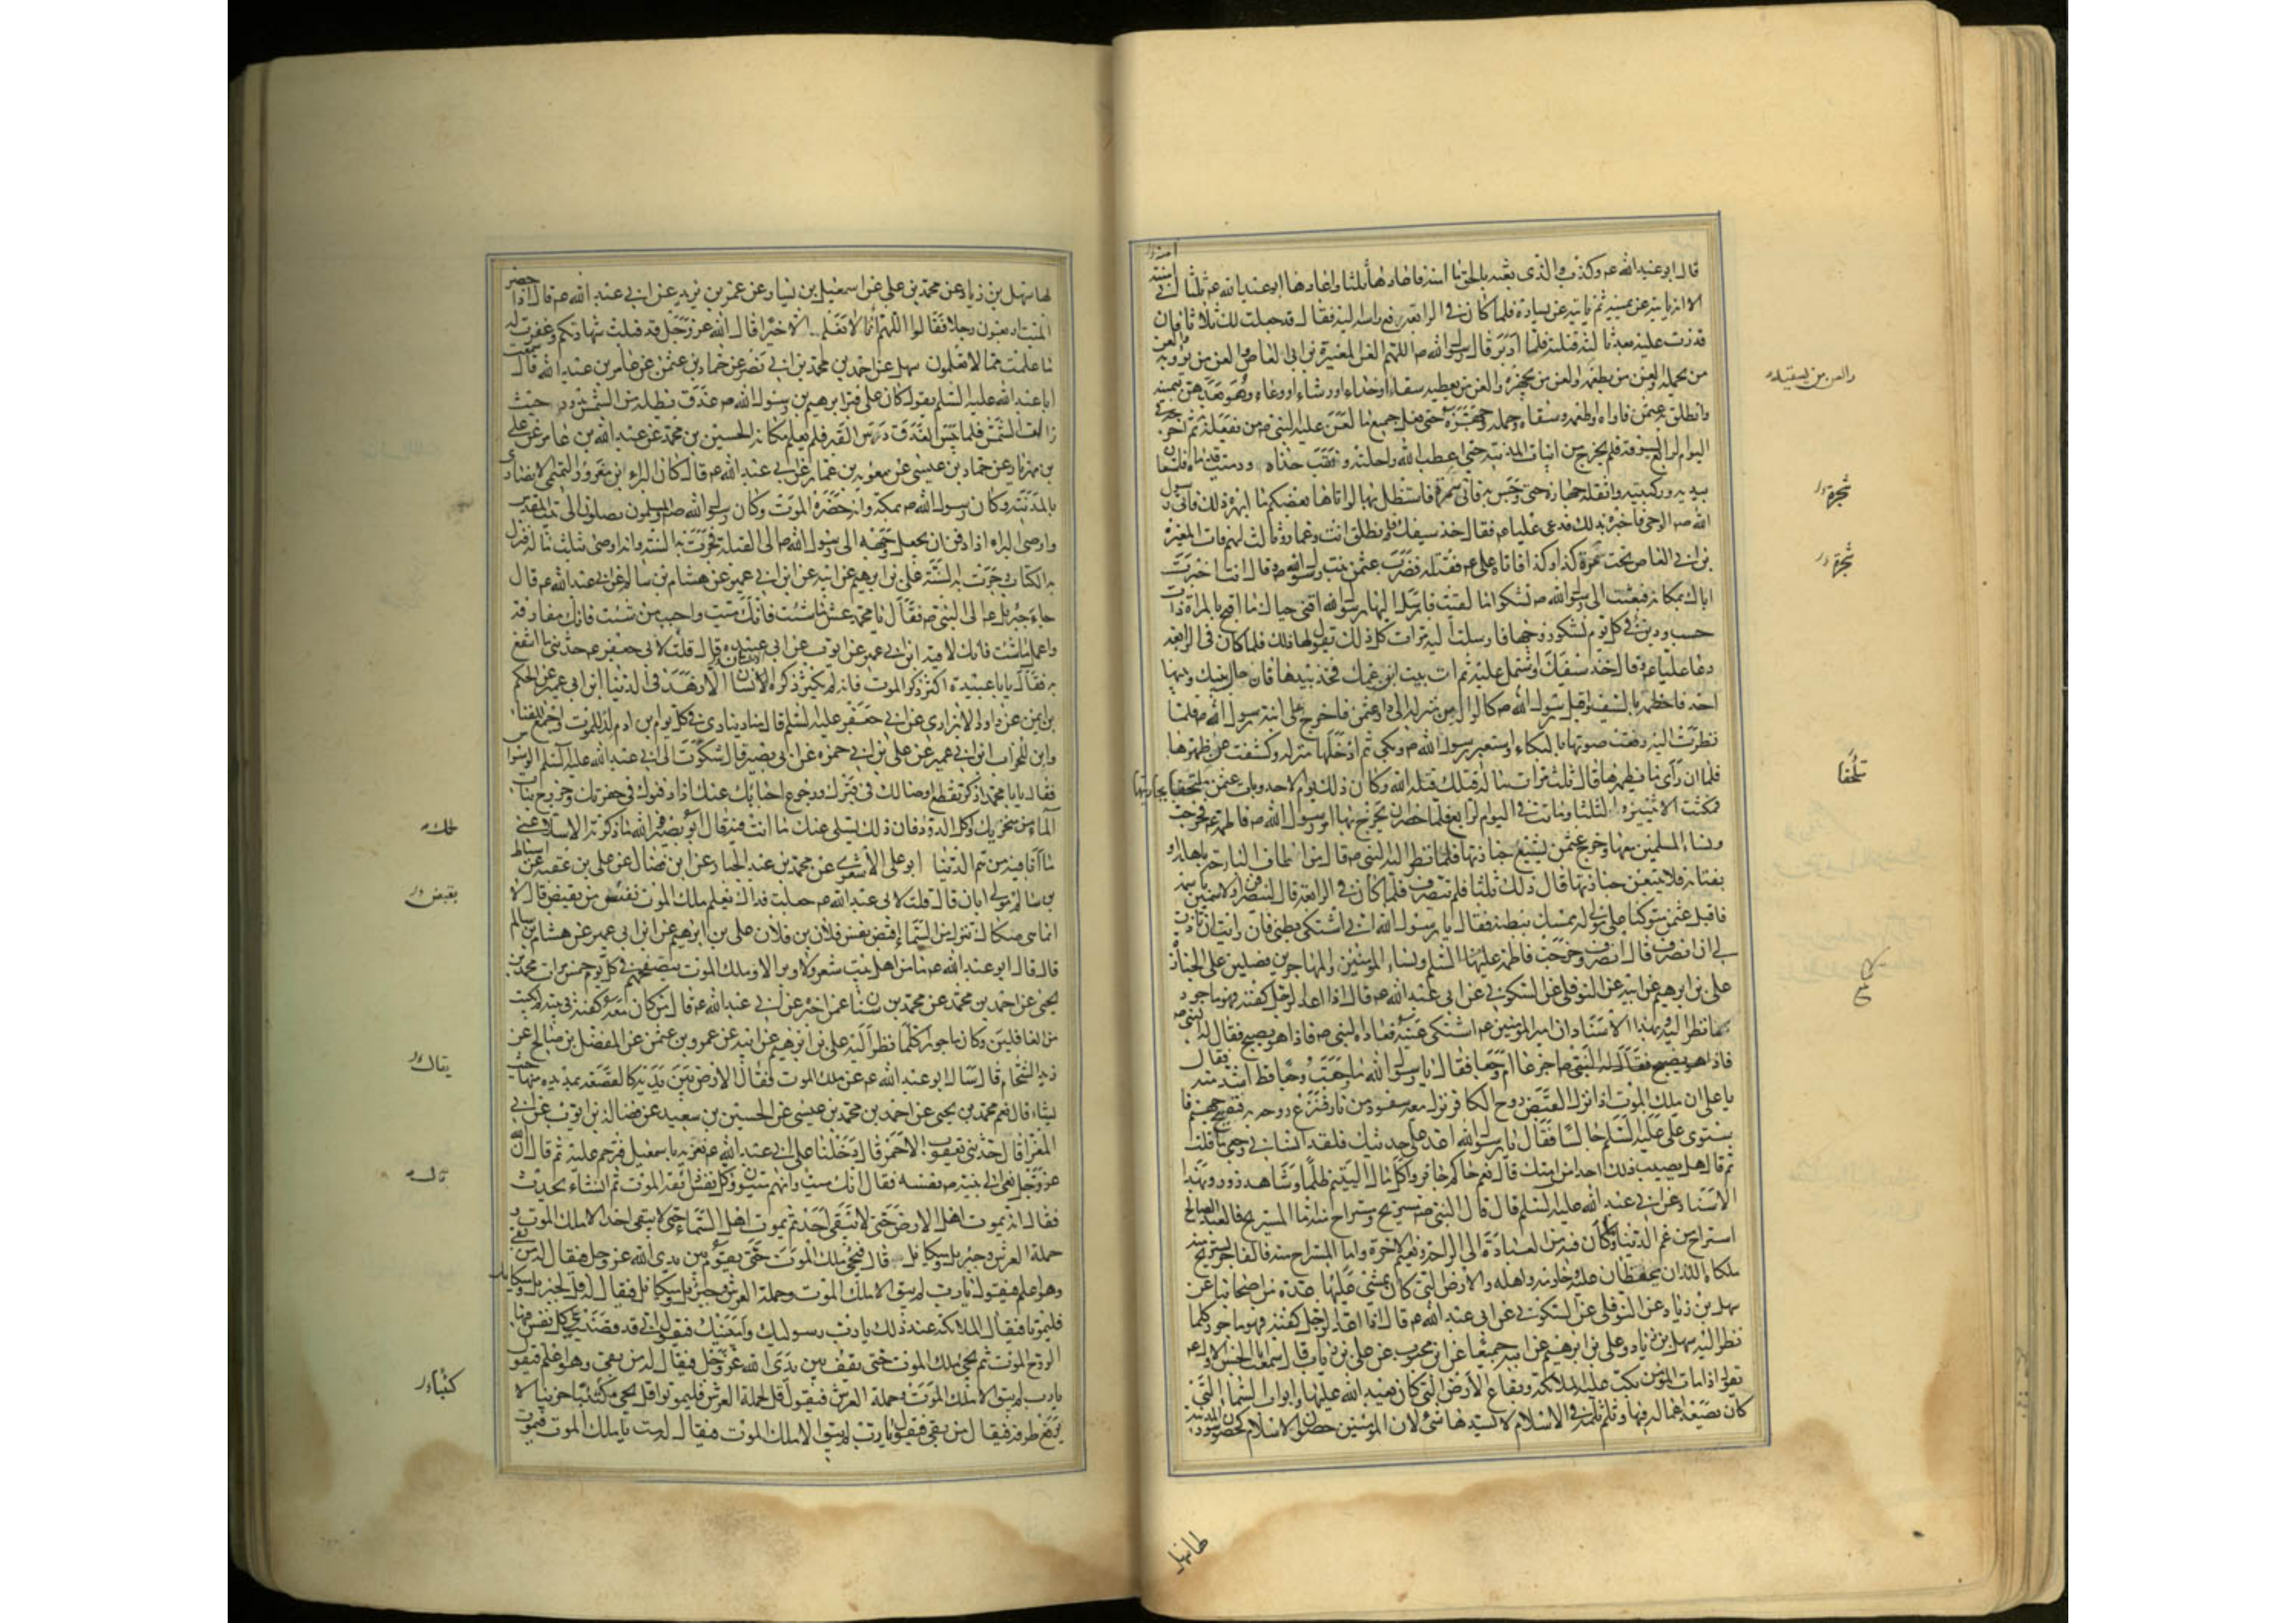 قال ابو عبد الله ع وكذب والذى بعثه بالحق ما امنته فاعادها ثلثا واعادها ابو عبد الله ع ثلثا انى امنته
الا انه ياتيه عن يمينه ثم ياتيه عن يساره فلما كان فى الرابعة رفع راسه اليه فقال قد جعلت لك ثلاثا فان
قدرت عليه بعد ثالثة قتلته فلما ادبر قال رسول الله ص اللهم العن المغيرة بن ابى العاص والعن من يؤويه
من يحمله والعن من يطعمه والعن من يجهزه والعن من يعطيه سقاء او حذاء او رشاء او وعاء وهو يعدهن بيمينه
وانطلق به عثمن فاواه واطعمه وسقاه وحمله وجهزه حتى فعل جميع ما لعن عليه النبى ص من يفعله به ثم اخرجه فى
اليوم الرابع يسوقه فلم يخرج من ابيات المدينة حتى اعطب الله راحلته ونقب حذاه ودميت قدماه فاستعان
بيديه وركبتيه واثقله جهازه حتى وجس به فاتى سمرة فاستظل بها لو اتاها بعضكم ما ابهره ذلك فاتى رسول
الله ص الوحى فاخبره بذلك فدعى عليا ع فقال خذ سيفك فانطلق انت وعمار وثالث لهم فات المغيرة
بن ابى العاص تحت شجرة كذا وكذا فاتاه على ع فقتله فضرب عثمن بنت رسول الله ص وقال انت اخبرت
اباك بمكانه فبعثت الى رسول الله ص تشكوا ما لقيت فارسل اليها رسول الله اقنى حياك ما اقبح بالمراة ذات
حسب ودين فى كل يوم تشكو زوجها فارسلت اليه مرات كل ذلك يقول لها ذلك فلما كان فى الرابعة
دعا عليا ع وقال خذ سيفك واشتمل عليه ثم ات بيت ابن عمك فخذ بيدها فان حال بينك وبينها
احد فاحطمه بالسيف واقبل رسول الله ص كالواله من منزله الى دار عثمن فاخرج على ابنة رسول الله ص فلما
نظرت اليه رفعت صوتها بالبكاء واستعبر رسول الله ص وبكى ثم ادخلها منزله وكشفت عن ظهرها
فلما ان راى ما بظهرها قال ثلث مرات ما له قتلك قتله الله وكان ذلك يوم الاحد وبات عثمن ملتحفا بجاريتها
فمكثت الاثنين والثلثا وماتت فى اليوم الرابع فلما حضر ان يخرج بها امر رسول الله ص فاطمة ع فخرجت
ونساء المسلمين معها وخرج عثمن يشيع جنازتها فلما نظر اليه النبى ص قال من اطاف البارحة باهله او
بفتاته فلا يتبعن جنازتها قال ذلك ثلثا فلم ينصرف فلما كان فى الرابعة قال لينصرفن او لاسمين باسمه
فاقبل عثمن متوكئا على مولى له ممسك ببطنه فقال يا رسول الله انى اشتكى بطنى فان رايت ان تاذن
لى ان انصرف قال انصرف وخرجت فاطمة عليها السلم ونساء المؤمنين والمهاجرين فصلين على الجنازة
على بن ابرهيم عن ابيه عن النوفلى عن السكونى عن ابى عبد الله ع قال اذا اعد الرجل كفنه فهو ماجور
كلما نظر اليه وبهذا الاسناد ان امير المؤمنين ع اشتكى عينه فعاده النبى ص فاذا هو يصيح فقال له النبى ص
فاذا هو يصيح فقال له النبى ص اجزعا ام وجعا فقال يا رسول الله ما وجعت وجعا قط اشد منه فقال
يا على ان ملك الموت اذا نزل لقبض روح الكافر نزل معه سفود من نار فنزع روحه به فتصيح جهنم فا
ستوى على عليه السلم جالسا فقال يا رسول الله اعد على حديثك فلقد انسانى وجعى ما قلت
ثم قال هل يصيب ذلك احدا من امتك قال نعم حاكم جائر واكل مال اليتيم ظلما وشاهد زور وبهذا
الاسناد عن ابى عبد الله عليه السلم قال قال النبى ص مستريح ومستراح منه اما المستريح فالعبد الصالح
استراح من غم الدنيا وما كان فيه من العبادة الى الراحة ونعيم الاخرة واما المستراح منه فالفاجر يستريح منه
ملكاه اللذان يحفظان عليه وخادمه واهله والارض التى كان يمشى عليها عدة من اصحابنا عن
سهل بن زياد عن النوفلى عن السكونى عن ابى عبد الله ع قال اذا اعد الرجل كفنه فهو ماجور كلما
نظر اليه سهل بن زياد وعلى بن ابرهيم عن ابيه جميعا عن ابن محبوب عن على بن رئاب قال سمعت ابا الحسن الاول ع
يقول اذا مات المؤمن بكت عليه الملائكة وبقاع الارض التى كان يعبد الله عليها وابواب السماء التى
كان يصعد اعماله فيها وثلم ثلمة فى الاسلام لا يسدها شئ لان المؤمنين حصون الاسلام كحصون سور المدينة
والعن من يسقيه
شجرة
شجرة
ملتحفا
لها سهل بن زياد عن محمد بن على عن اسمعيل بن يسار عن عمر بن يزيد عن ابى عبد الله ع قال اذا حضر
الميت اربعون رجلا فقالوا اللهم انا لا نعلم منه الا خيرا قال الله عز وجل قد قبلت شهادتكم وغفرت له
ما علمت مما لا تعلمون سهل عن احمد بن محمد بن ابى نصر عن حماد بن عثمن عن عامر بن عبد الله قال سمعت
ابا عبد الله عليه السلم يقول كان على قبر ابرهيم بن رسول الله ص عذق يظله من الشمس يدور حيث
زالت الشمس فلما يبس العذق درس القبر فلم يعلم مكانه الحسين بن محمد عن عبد الله بن عامر عن على
بن مهزيار عن حماد بن عيسى عن معوية بن عمار عن ابى عبد الله ع قال كان البراء ابن معرور التميمى الانصارى
بالمدينة وكان رسول الله ص بمكة وانه حضره الموت وكان رسول الله ص والمسلمون يصلون الى بيت المقدس
واوصى البراء اذا دفن ان يجعل وجهه الى رسول الله ص الى القبلة فجرت به السنة وانه اوصى بثلث ماله فنزل
به الكتاب وجرت به السنة على بن ابرهيم عن ابيه عن ابن ابى عمير عن هشام بن سالم عن ابى عبد الله ع قال
جاء جبرئيل ع الى النبى ص فقال يا محمد عش ما شئت فانك ميت واحبب من شئت فانك مفارقه
واعمل ما شئت فانك لاقيه ابن ابى عمير عن ايوب عن ابى عبيدة قال قلت لابى جعفر ع حدثنى ما انتفع
به فقال يا ابا عبيدة اكثر ذكر الموت فانه لم يكثر ذكره الانسان الا زهد فى الدنيا ابن ابى عمير عن الحكم
بن ايمن عن داود الابزارى عن ابى جعفر عليه السلم قال مناد ينادى فى كل يوم ابن ادم لد للموت واجمع للفناء
وابن للخراب ابن ابى عمير عن على بن ابى حمزة عن ابى بصير قال شكوت الى ابى عبد الله عليه السلم الوسواس
فقال يا ابا محمد اذكر تقطع اوصالك فى قبرك ورجوع احبابك عنك اذا دفنوك فى حفرتك وخروج بنات
الماء من منخريك واكل الدود فان ذلك يسلى عنك ما انت فيه قال ابو بصير فوالله ما ذكرته الا سلى عنى
ما انا فيه من هم الدنيا ابو على الاشعرى عن محمد بن عبد الجبار عن ابن فضال عن على بن عقبة عن اسباط
بن سالم مولى ابان قال قلت لابى عبد الله ع جعلت فداك يعلم ملك الموت نفس من يقبض قال لا
انما هى صكاك تنزل من السماء اقبض نفس فلان بن فلان على بن ابرهيم عن ابن ابى عمير عن هشام بن سالم
قال قال ابو عبد الله ع ما من اهل بيت شعر ولا وبر الا وملك الموت يتصفحهم فى كل يوم خمس مرات محمد بن
يحيى عن احمد بن محمد عن محمد بن سنان عمن اخبره عن ابى عبد الله ع قال من كان معه كفنه فى بيته لم يكتب
من الغافلين وكان ماجورا كلما نظر اليه على بن ابرهيم عن ابيه عن عمرو بن عثمن عن المفضل بن صالح عن
زيد الشحام قال سال ابو عبد الله ع عن ملك الموت فقال الارض بين يديه كالقصعة يمد يده منها حيث
يشاء قال نعم محمد بن يحيى عن احمد بن محمد بن عيسى عن الحسين بن سعيد عن فضالة بن ايوب عن ابى
المغرا قال حدثنى يعقوب الاحمر قال دخلنا على ابى عبد الله ع نعزيه باسمعيل فترحم عليه ثم قال ان الله
عز وجل نعى الى نبيه ص نفسه فقال انك ميت وانهم ميتون وكل نفس ذائقة الموت ثم انشاء يحدث
فقال انه يموت اهل الارض حتى لا يبقى احد ثم يموت اهل السماء حتى لا يبقى احد الا ملك الموت و
حملة العرش وجبرئيل وميكائيل قال فيجئ ملك الموت حتى يقوم بين يدى الله عز وجل فيقال له من بقى
وهو اعلم فيقول يا رب لم يبق الا ملك الموت وحملة العرش وجبرئيل وميكائيل فيقال له قل لجبرئيل وميكائيل
فليموتا فيقال الملائكة عند ذلك يا رب رسوليك وامينيك فيقول انى قد قضيت على كل نفس فيها
الروح الموت ثم يجئ ملك الموت حتى يقف بين يدى الله عز وجل فيقال له من بقى وهو اعلم فيقول
يا رب لم يبق الا ملك الموت وحملة العرش فيقول قل لحملة العرش فليموتوا قال ثم يجئ مكتئبا حزينا لا
يرفع طرفه فيقال من بقى فيقول يا رب لم يبق الا ملك الموت فيقال له مت يا ملك الموت فيموت
يقبض
يقال
قال
كئيبا